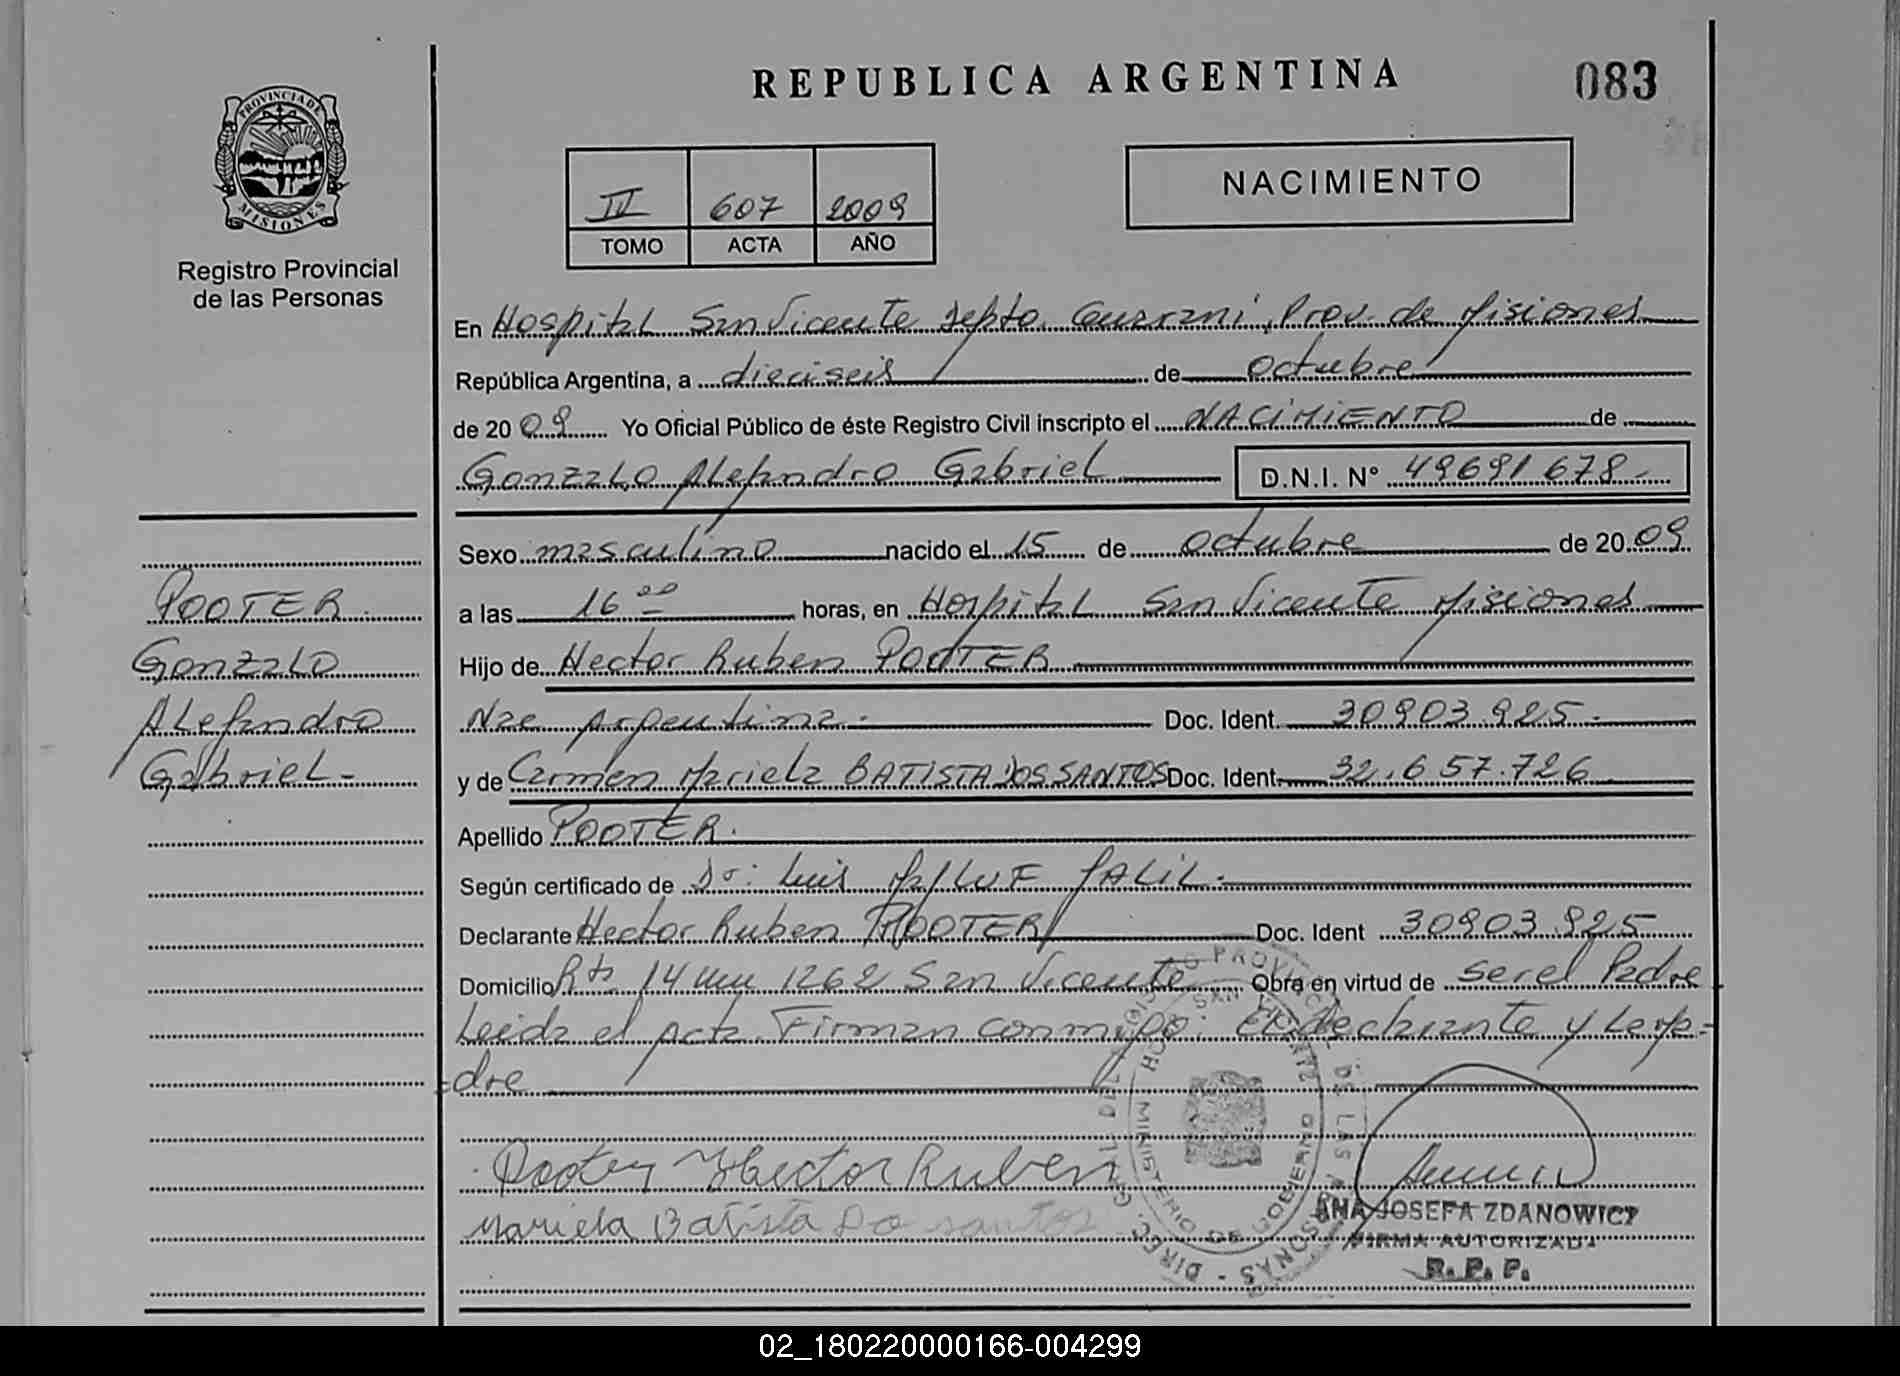 REPUBLICA ARGENTINA
083
PROVINCIA DE
MISIONES
Registro Provincial
de las Personas
607 2009
TOMO ACTA AÑO
NACIMIENTO
En Hospital San Vicente Depto. Guarani, Prov. de Misiones
República Argentina, a dieciseis de octubre
de 2009 Yo Oficial Público de éste Registro Civil inscripto el NACIMIENTO de
Gonzalo Alejandro Gabriel D.N.I. Nº 49691678.-
Sexo masculino nacido el 15 de octubre de 2009
a las 16 00 horas, en Hospital San Vicente Misiones
Hijo de Hector Ruben POOTER
Nac Argentina.- Doc. Ident. 30903.925.-
y de Carmen Mariela BATISTA DOS SANTOS Doc. Ident 32.657.726
Apellido POOTER.
Según certificado de Dr: Luis JALIL.-
Declarante Hector Ruben POOTER Doc. Ident 30903.925
Domicilio Rta 14 1262 San Vicente Obra en virtud de ser el Padre
Leida el acta Firman conmigo: El declarante y la ma-
=dre
POOTER.
Gonzalo
Alejandro
Gabriel.-
Pooter Hector Ruben
Mariela Batista Do santos
DIREC. GRAL. DEL REGISTRO PROVINCIAL DE LAS PERSONAS
MINISTERIO DE GOBIERNO
SAN VICENTE
ANA JOSEFA ZDANOWICZ
FIRMA AUTORIZADA
R. P. P.
02_180220000166-004299